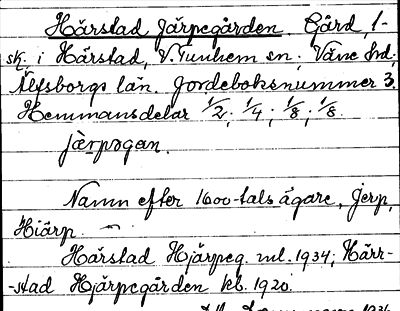 Hårstad Järpegården. Gård, 1-
sk. i Hårstad, V. Tunhem sn; Väne hd;
Älfsborgs län. Jordeboksnummer 3.
Hemmansdelar 1/2; 1/4; 1/8; 1/8.
jàrpǝgan.
Namn efter 1600-tals ägare, Jerp,
Hiärp. ~
Hårstad Hjärpeg. ml. 1934; Hårr-
-stad Hjärpegården kb. 1920.
1934